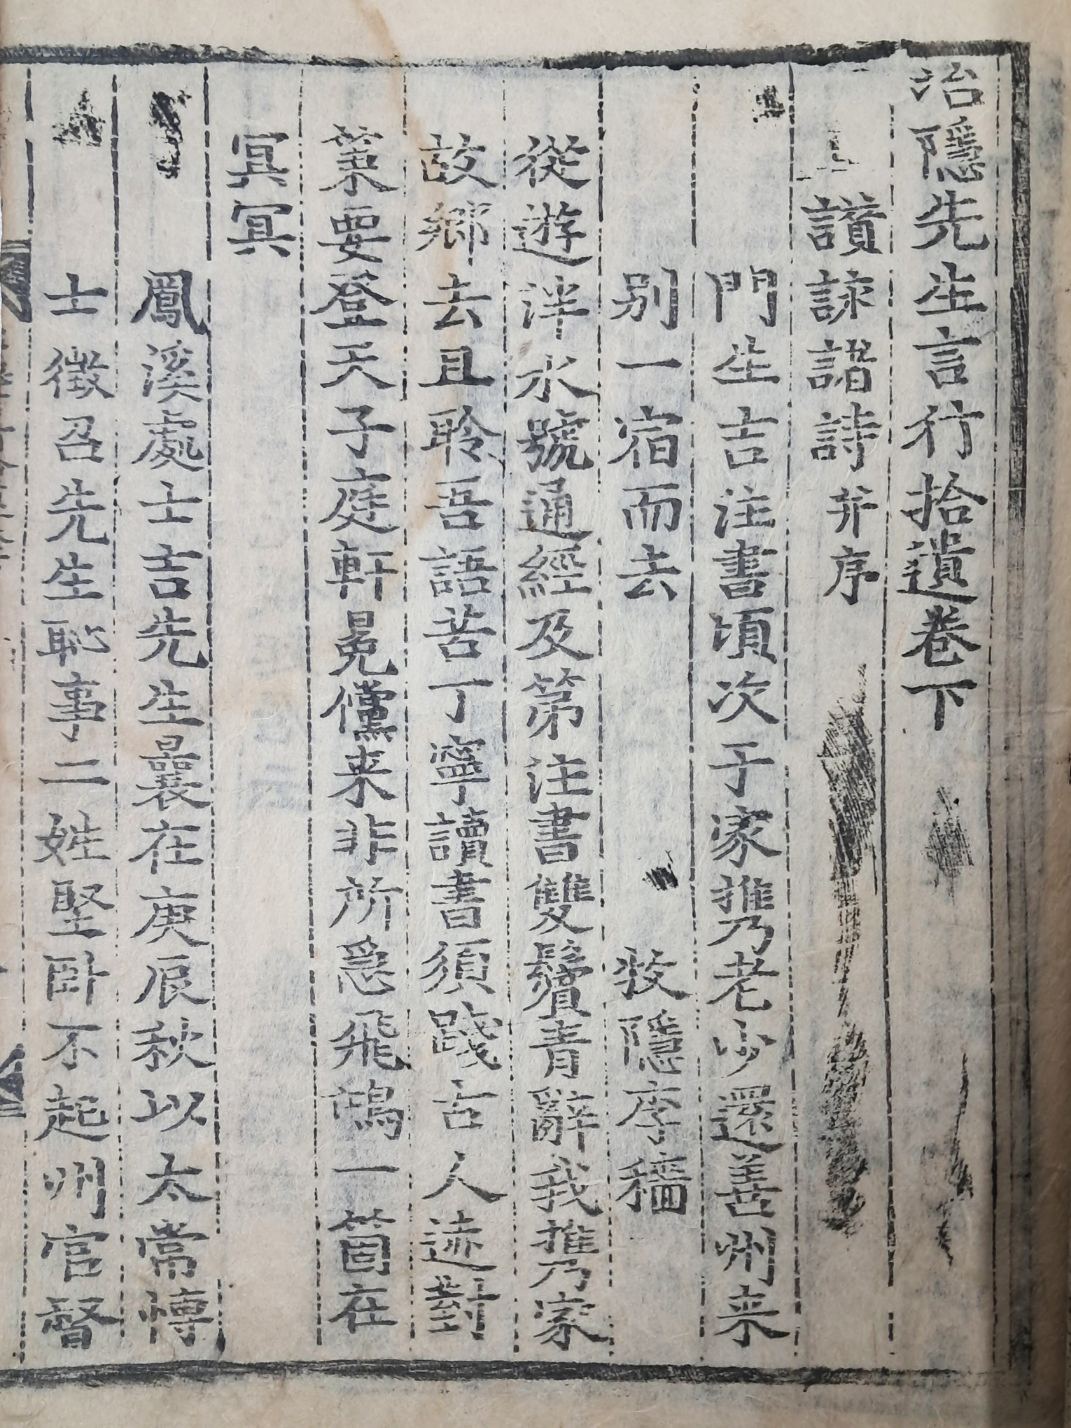 冶隱先生言行拾遺卷下
讃詠諸詩并序
門生吉注書頃次于家携乃老少還善州来
別一宿而去 牧隱李穡
從遊泮水號通經及第注書雙鬢青辭我携乃家
故鄉去且聆吾語苦丁寧讀書須踐古人迹對
策要登天子庭軒冕儻来非所急飛鴻一箇在
冥冥
鳳溪處士吉先生曩在庚辰秋以太常博
士徵召先生恥事二姓堅卧不起州官督